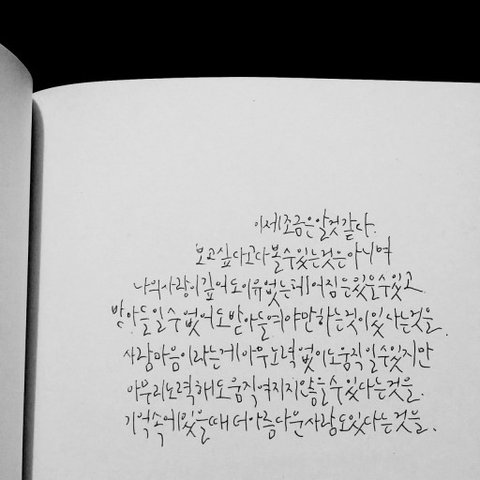 이제 조금은 알 것 같다.
보고 싶다고 다 볼 수 있는 것은 아니며
나의 사랑이 깊어도 이유 없는 헤어짐은 있을 수 있고
받아들일 수 없어도 받아들여야만 하는 것이 있다는 것을.
사람 마음이라는 게 아무 노력 없이도 움직일 수 있지만
아무리 노력해도 움직여지지 않을 수 있다는 것을.
기억 속에 있을 때 더 아름다운 사람도 있다는 것을.